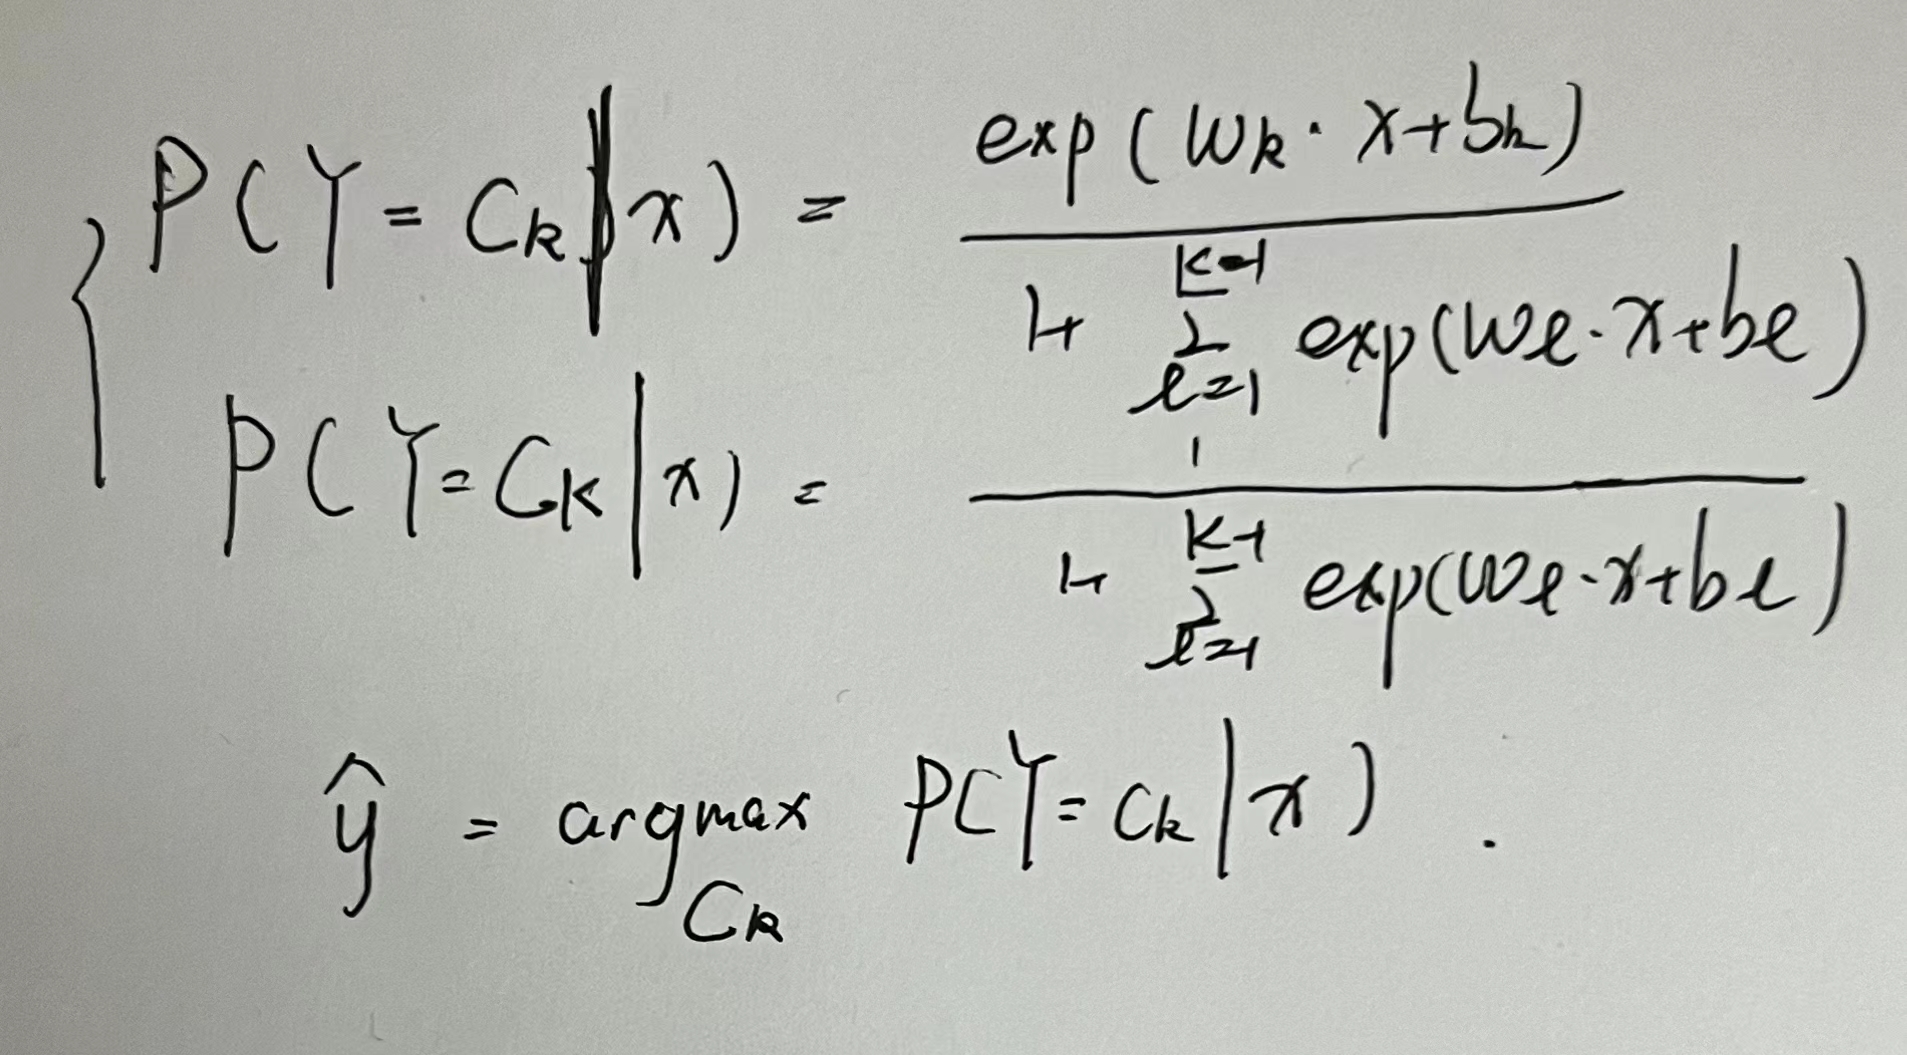 P(Y = C_k | x) = exp(w_k · x + b_k) / (1 + Σ_{ℓ=1}^{K-1} exp(w_ℓ · x + b_ℓ))
P(Y = C_K | x) = 1 / (1 + Σ_{ℓ=1}^{K-1} exp(w_ℓ · x + b_ℓ))
ŷ = argmax_{C_k} P(Y = C_k | x) .